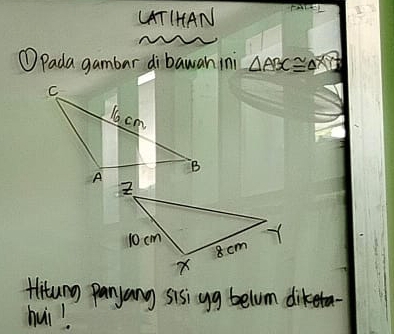 LATIHAN
① Pada gambar di bawah ini △ABC ≅ △XYZ
C
16 cm
B
A
Z
10 cm
Y
8 cm
X
Hitung panjang sisi yg belum diketa-
hui!